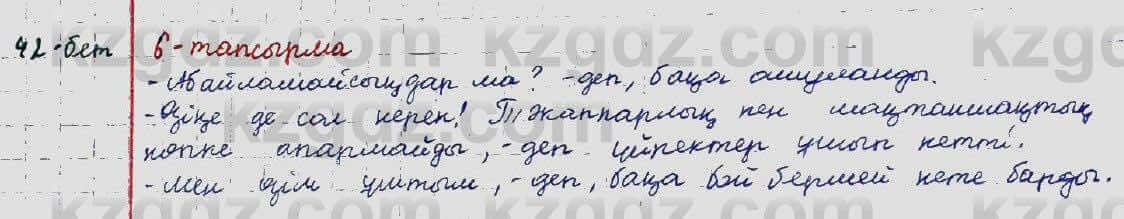 42-бет 6-тапсырма
- Абайламайсыңдар ма? - деп, бақа ашуланды.
- Өзіңе де сол керек! Тәкаппарлық пен мақтаншақтық
көпке апармайды, - деп үйректер ұшып кетті.
- Мен өзім ұштым, - деп, бақа бой бермей кете барды.